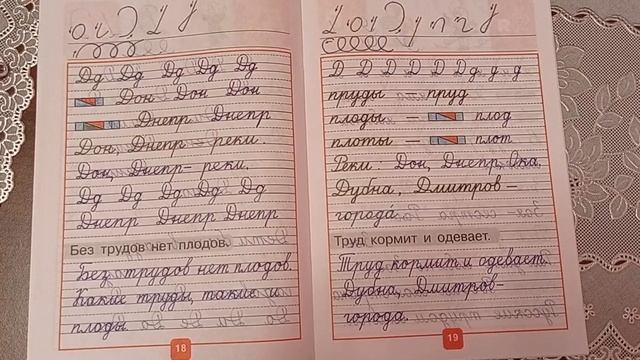 Дд Дд Дд Дд Дд
Дон Дон Дон
Днепр Днепр
Дон, Днепр – реки.
Дон, Днепр – реки.
Дд Дд Дд Дд Дд
Днепр Днепр Днепр
Без трудов нет плодов.
Без трудов нет плодов.
Какие труды, такие и
плоды.
18
Д Д Д Д Д Дд д д
пруды – пруд
плоды – плод
плоты – плот
Реки: Дон, Днепр, Ока.
Дубна, Дмитров –
города
Труд кормит и одевает.
Труд кормит и одевает.
Дубна, Дмитров-
города.
19